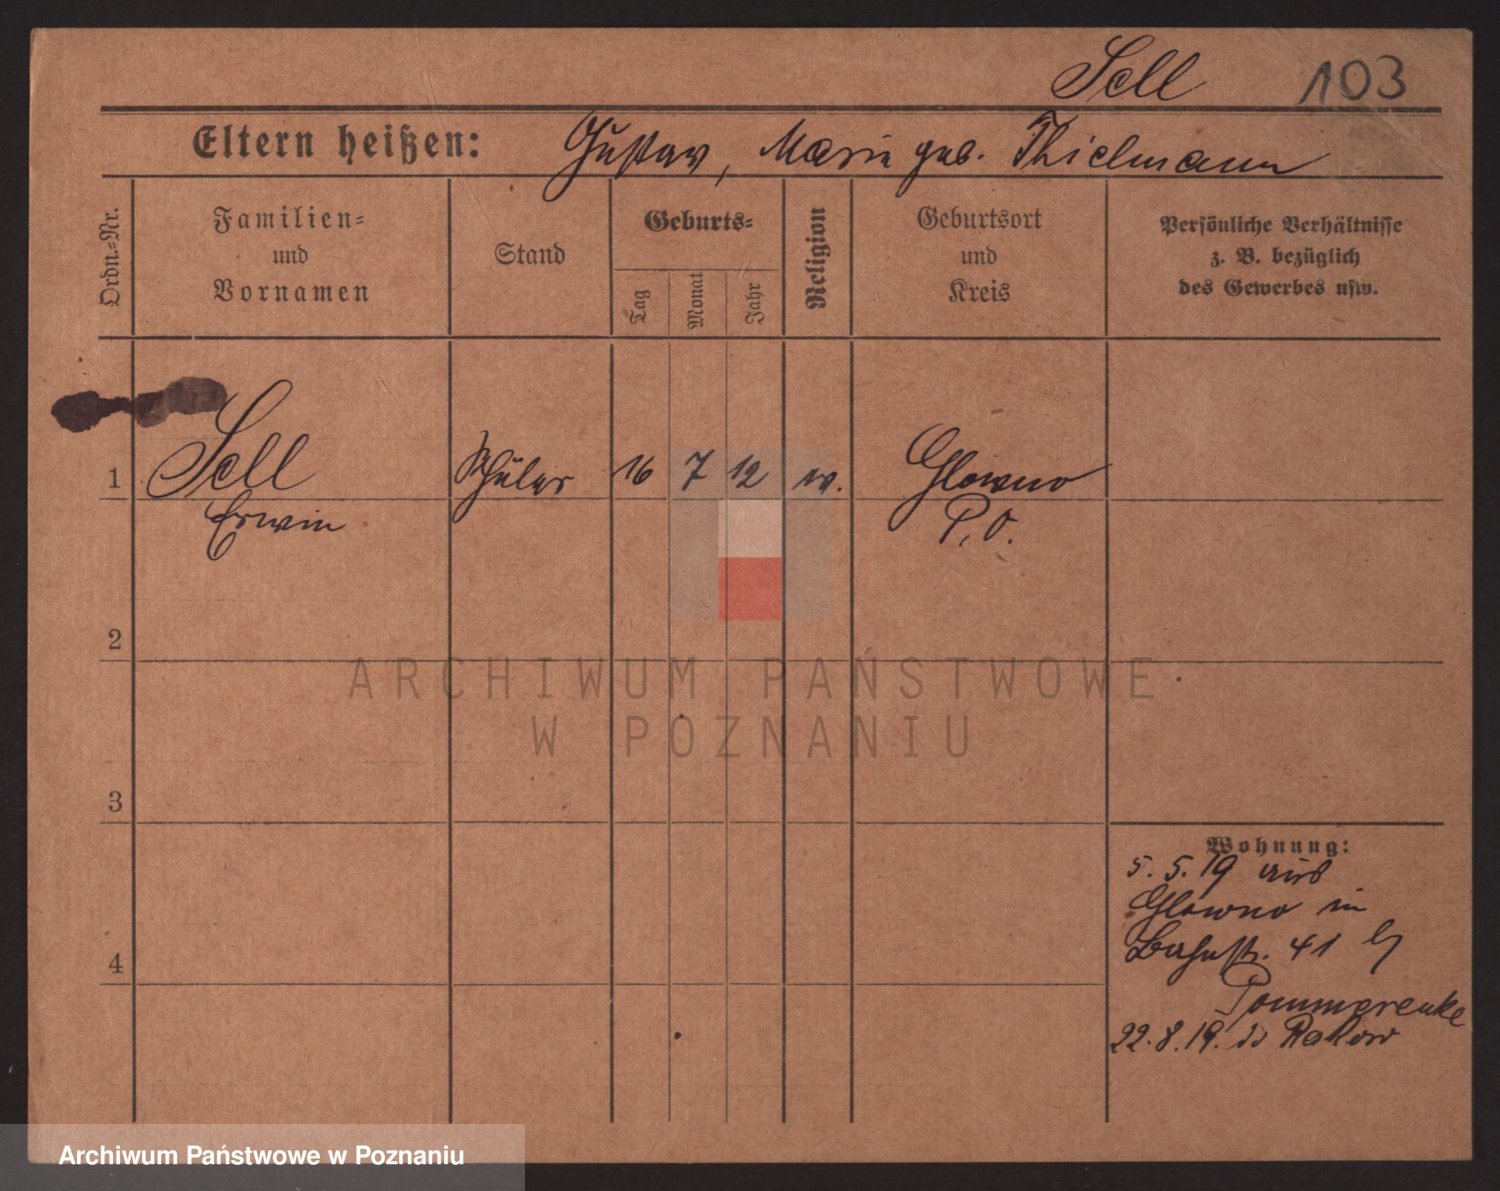 Sell 103
Eltern heißen: Gustav, Marie geb. Thielmann
Ordn.=Nr.
Familien=
und
Vornamen
Stand
Geburts=
Tag
Monat
Jahr
Religion
Geburtsort
und
Kreis
Persönliche Verhältnisse
z. B. bezüglich
des Gewerbes usw.
1 Sell Schüler 16 7 12 ev. Glowno
Erwin P. O.
2
3
4
Wohnung:
5. 5. 19 aus
Glowno in
41
Pommerenke
22. 8. 19.
ARCHIWUM PAŃSTWOWE
W POZNANIU
Archiwum Państwowe w Poznaniu